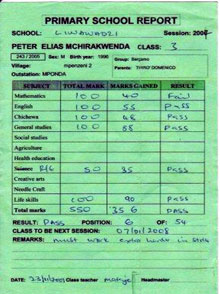 PRIMARY SCHOOL REPORT
SCHOOL: LIWAWADZI Session: 2007
PETER ELIAS MCHIRAKWENDA CLASS: 3
243 / 2005 Sex: M Birth year: 1996 Group: Senjano
Village: mpenzeni 2 Parents: THIRD DOMENICO
Outstation: MPONDA
SUBJECT TOTAL MARK MARKS GAINED RESULT
Mathematics 100 40 Fail
English 100 55 Pass
Chichewa 100 68 Pass
General studies 100 88 Pass
Social studies
Agriculture
Health education
Science R/6 50 35 Pass
Creative arts
Needle Craft
Life skills 100 90 Pass
Total marks 550 356 Pass
RESULT: PASS POSITION: 6 OF: 54
CLASS TO BE NEXT SESSION: 07/01/2008
REMARKS: must work extra hard in
DATE: Class teacher Headmaster